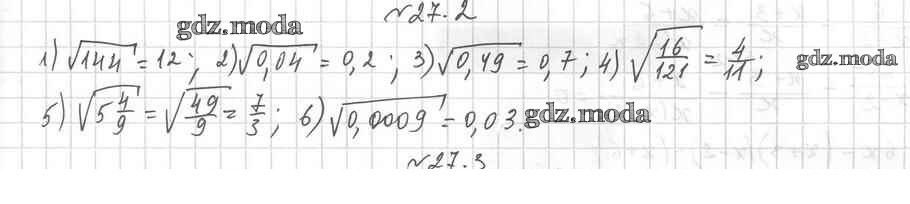 №27.2
gdz.moda
1) √144 = 12; 2) √0,04 = 0,2; 3) √0,49 = 0,7; 4) √16/121 = 4/11; gdz.moda
5) √5 4/9 = √49/9 = 7/3; 6) √0,0009 = 0,03. gdz.moda
№27.3